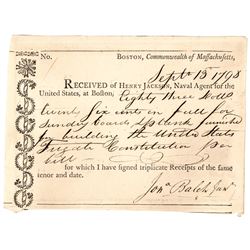 No. BOSTON, Commonwealth of Massachusetts,
Sept 13 1798
RECEIVED OF HENRY JACKSON, Naval Agent for the
United States, at Boston, Eighty Three Doll
twent six cents in full for
Sundry boards & Plank furnished
for building the United States
Frigate Constitution per
bill
for which I have signed triplicate Receipts of the same
tenor and date.
Jona Balch Junr